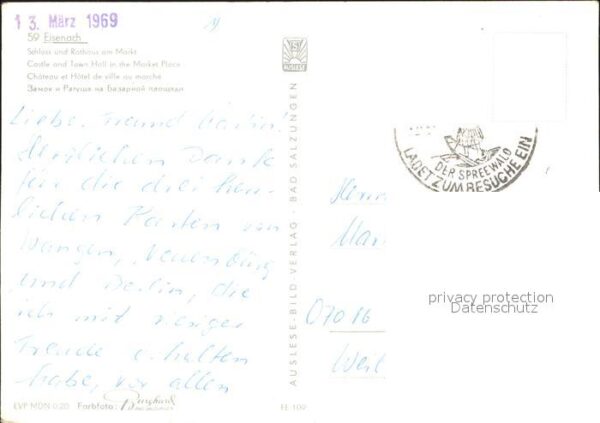 13. März 1969
59 Eisenach
Schloss und Rathaus am Markt
Castle and Town Hall in the Market Place
Château et Hôtel de ville au marché
Замок и Ратуша на Базарной площади
Liebe Freund
Herzlichen Dank
für die drei herr-
lichen Karten von
Wangen, Neuenburg
und Berlin, die
ich mit riesiger
Freude erhalten
habe, vor allem
EVP MDN 0,20 Farbfoto: Burghard
BAD SALZUNGEN
FE 109
AUSLESE-BILD-VERLAG · BAD SALZUNGEN
DER SPREEWALD
LADET ZUM BESUCHE EIN
Herrn
07016
Weil
privacy protection
Datenschutz